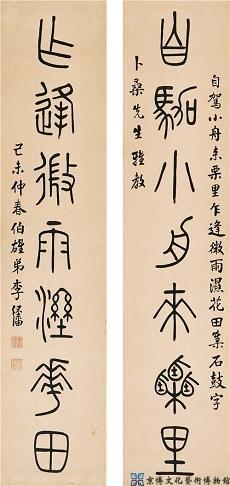 自駕小舟來栗里
自駕小舟来栗里乍逢微雨濕花田集石鼓字
卜桑先生雅教
乍逢微雨溼花田
己未仲春伯雄弟李
京博文化藝術博物館